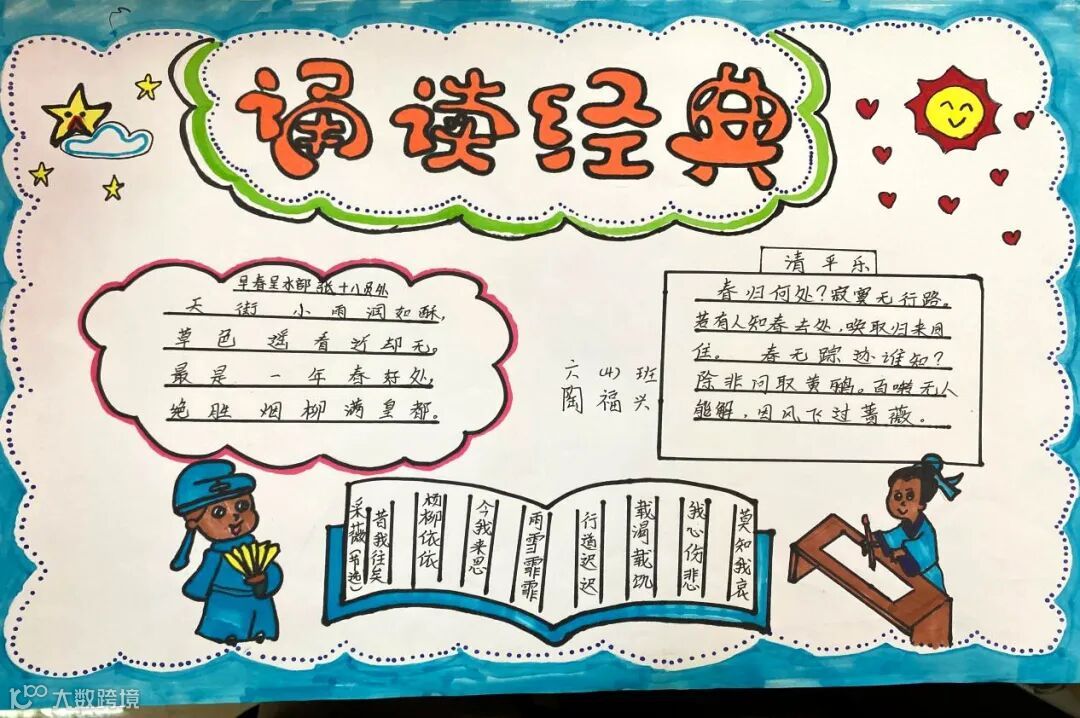 诵读经典
早春呈水部张十八员外
天街小雨润如酥，
草色遥看近却无。
最是一年春好处，
绝胜烟柳满皇都。
六（4）班
陶福兴
清平乐
春归何处？寂寞无行路。
若有人知春去处，唤取归来同
住。春无踪迹谁知？
除非问取黄鹂。百啭无人
能解，因风飞过蔷薇。
采薇（节选）
昔我往矣
杨柳依依
今我来思
雨雪霏霏
行道迟迟
载渴载饥
我心伤悲
莫知我哀
大数跨境